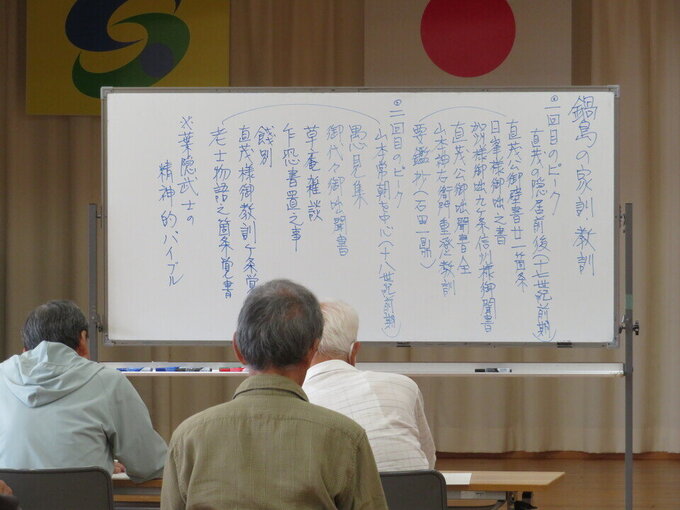 鍋島の家訓 教訓
◎一回目のピーク
直茂の隠居前後(十七世紀前期)
直茂公御壁書廿一箇条
日峯様御咄之書
勝茂様御咄九ケ条信州様御聞書
直茂公御咄聞書全
山本神右衛門重澄教訓
要鑑抄(石田一鼎)
◎二回目のピーク
山本常朝を中心(十八世紀前期)
愚見集
御代々御咄聞書
草庵雑談
乍恐書置之事
餞別
直茂様御教訓ケ条覚
老士物語之箇条覚書
※葉隠武士の
精神的バイブル